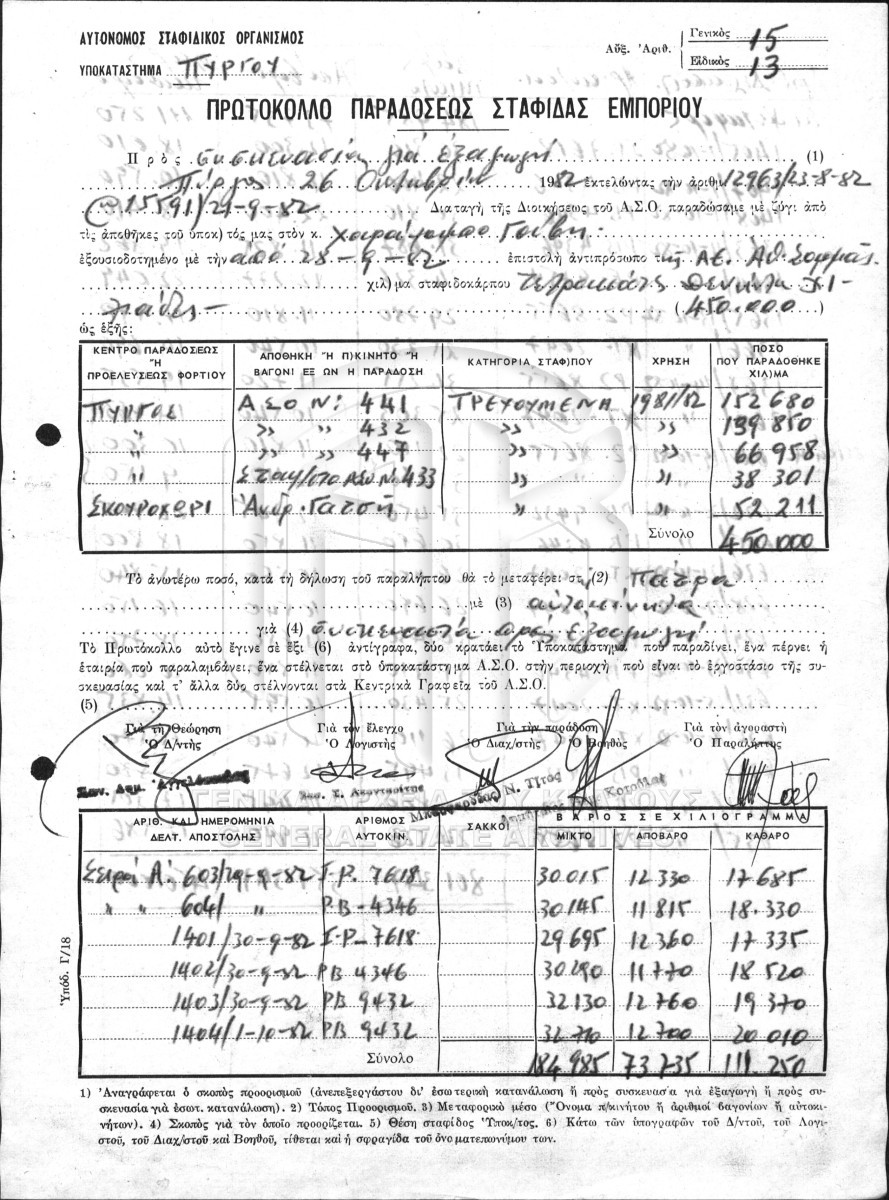 ΑΥΤΟΝΟΜΟΣ ΣΤΑΦΙΔΙΚΟΣ ΟΡΓΑΝΙΣΜΟΣ
ΥΠΟΚΑΤΑΣΤΗΜΑ ΠΥΡΓΟΥ
Αὔξ. Ἀριθ. Γενικὸς 15
Εἰδικὸς 13
ΠΡΩΤΟΚΟΛΛΟ ΠΑΡΑΔΟΣΕΩΣ ΣΤΑΦΙΔΑΣ ΕΜΠΟΡΙΟΥ
Πρὸς συσκευασία γιά ἐξαγωγή (1)
Πύργος 26 Οκτωβρίου 1982 ἐκτελώντας τὴν ἀριθμ 12963/23-8-82
15591/21-9-82 Διαταγὴ τῆς Διοικήσεως τοῦ Α.Σ.Ο. παραδώσαμε μὲ ζύγι ἀπὸ
τὶς ἀποθῆκες τοῦ ὑποκ)τός μας στὸν κ. Χαράλαμπο
ἐξουσιοδοτημένο μὲ τὴν ἀπό 28-9-82 ἐπιστολὴ ἀντιπρόσωπο τῆς ΑΕ. Αθ.
χιλ)μα σταφιδοκάρπου Τετρακόσιες πενήντα χι-
λιάδες- (450.000)
ὡς ἑξῆς:
ΚΕΝΤΡΟ ΠΑΡΑΔΟΣΕΩΣ Ἢ ΠΡΟΕΛΕΥΣΕΩΣ ΦΟΡΤΙΟΥ ΑΠΟΘΗΚΗ Ἢ Π)ΚΙΝΗΤΟ Ἢ ΒΑΓΟΝΙ ΕΞ ΩΝ Η ΠΑΡΑΔΟΣΗ ΚΑΤΗΓΟΡΙΑ ΣΤΑΦ)ΠΟΥ ΧΡΗΣΗ ΠΟΣΟ ΠΟΥ ΠΑΡΑΔΟΘΗΚΕ ΧΙΛ)ΜΑ
ΠΥΡΓΟΣ ΑΣΟ Ν: 441 ΤΡΕΧΟΥΜΕΝΗ 1981/82 152 680
" >> " 432 >> >> 139 850
" >> " 447 >> >> 66 958
" ΑΣΟ Ν. 433 >> >> 38 301
ΣΚΟΥΡΟΧΩΡΙ Ἀνδρ. Γατσῆ " " 52 211
Σύνολο 450.000
Τὸ ἀνωτέρω ποσό, κατὰ τὴ δήλωση τοῦ παραλήπτου θὰ τὸ μεταφέρει στ (2) Πάτρα
μὲ (3) αὐτοκίνητα
γιὰ (4) συσκευασία πρός ἐξαγωγή
Τὸ Πρωτόκολλο αὐτὸ ἔγινε σὲ ἕξι (6) ἀντίγραφα, δύο κρατάει τὸ Ὑποκατάστημα ποὺ παραδίνει, ἕνα πέρνει ἡ
ἑταιρία ποὺ παραλαμβάνει, ἕνα στέλνεται στὸ ὑποκατάστημα Α.Σ.Ο. στὴν περιοχὴ ποὺ εἶναι τὸ ἐργοστάσιο τῆς συ-
σκευασίας καὶ τ' ἄλλα δύο στέλνονται στὰ Κεντρικὰ Γραφεῖα τοῦ Α.Σ.Ο.
(5)
Γιὰ τὴ Θεώρηση Γιὰ τὸν ἔλεγχο Γιὰ τὴν παράδοση Γιὰ τὸν ἀγοραστὴ
Ὁ Δ/ντὴς Ὁ Λογιστὴς Ὁ Διαχ/στὴς Ὁ Βοηθὸς Ὁ Παραλήπτης
ΓΕΝΙΚΑ ΑΡΧΕΙΑ ΤΟΥ ΚΡΑΤΟΥΣ
GENERAL STATE ARCHIVES
ΑΡΙΘ. ΚΑΙ ΗΜΕΡΟΜΗΝΙΑ ΔΕΛΤ. ΑΠΟΣΤΟΛΗΣ ΑΡΙΘΜΟΣ ΑΥΤΟΚΙΝ. ΣΑΚΚΟΙ ΒΑΡΟΣ ΣΕ ΧΙΛΙΟΓΡΑΜΜΑ
ΜΙΚΤΟ ΑΠΟΒΑΡΟ ΚΑΘΑΡΟ
Σειρά Α. 603/29-9-82 Ι-Ρ. 7618 30 015 12 330 17 685
" " 604/ " ΡΒ-4346 30 145 11 815 18.330
1401/30-9-82 Ι-Ρ-7618 29 695 12 360 17 335
1402/30-9-82 ΡΒ 4346 30 290 11 770 18 520
1403/30-9-82 ΡΒ 9432 32 130 12 760 19 370
1404/1-10-82 ΡΒ 9432 32 710 12 700 20 010
Σύνολο 184 985 73 735 111 250
Ὑπόδ. Γ/18
1) Ἀναγράφεται ὁ σκοπὸς προορισμοῦ (ἀνεπεξεργάστου δι' ἐσωτερικὴ κατανάλωση ἢ πρὸς συσκευασία γιὰ ἐξαγωγὴ ἢ πρὸς συ-
σκευασία γιὰ ἐσωτ. κατανάλωση). 2) Τόπος Προορισμοῦ. 3) Μεταφορικὸ μέσο (Ὄνομα π/κινήτου ἢ ἀριθμοὶ βαγονίων ἢ αὐτοκι-
νήτων). 4) Σκοπὸς γιὰ τὸν ὁποῖο προορίζεται. 5) Θέση σταφίδος Ὑποκ/τος. 6) Κάτω τῶν ὑπογραφῶν τοῦ Δ/ντοῦ, τοῦ Λογι-
στοῦ, τοῦ Διαχ/στοῦ καὶ Βοηθοῦ, τίθεται καὶ ἡ σφραγίδα τοῦ ὀνοματεπωνύμου των.